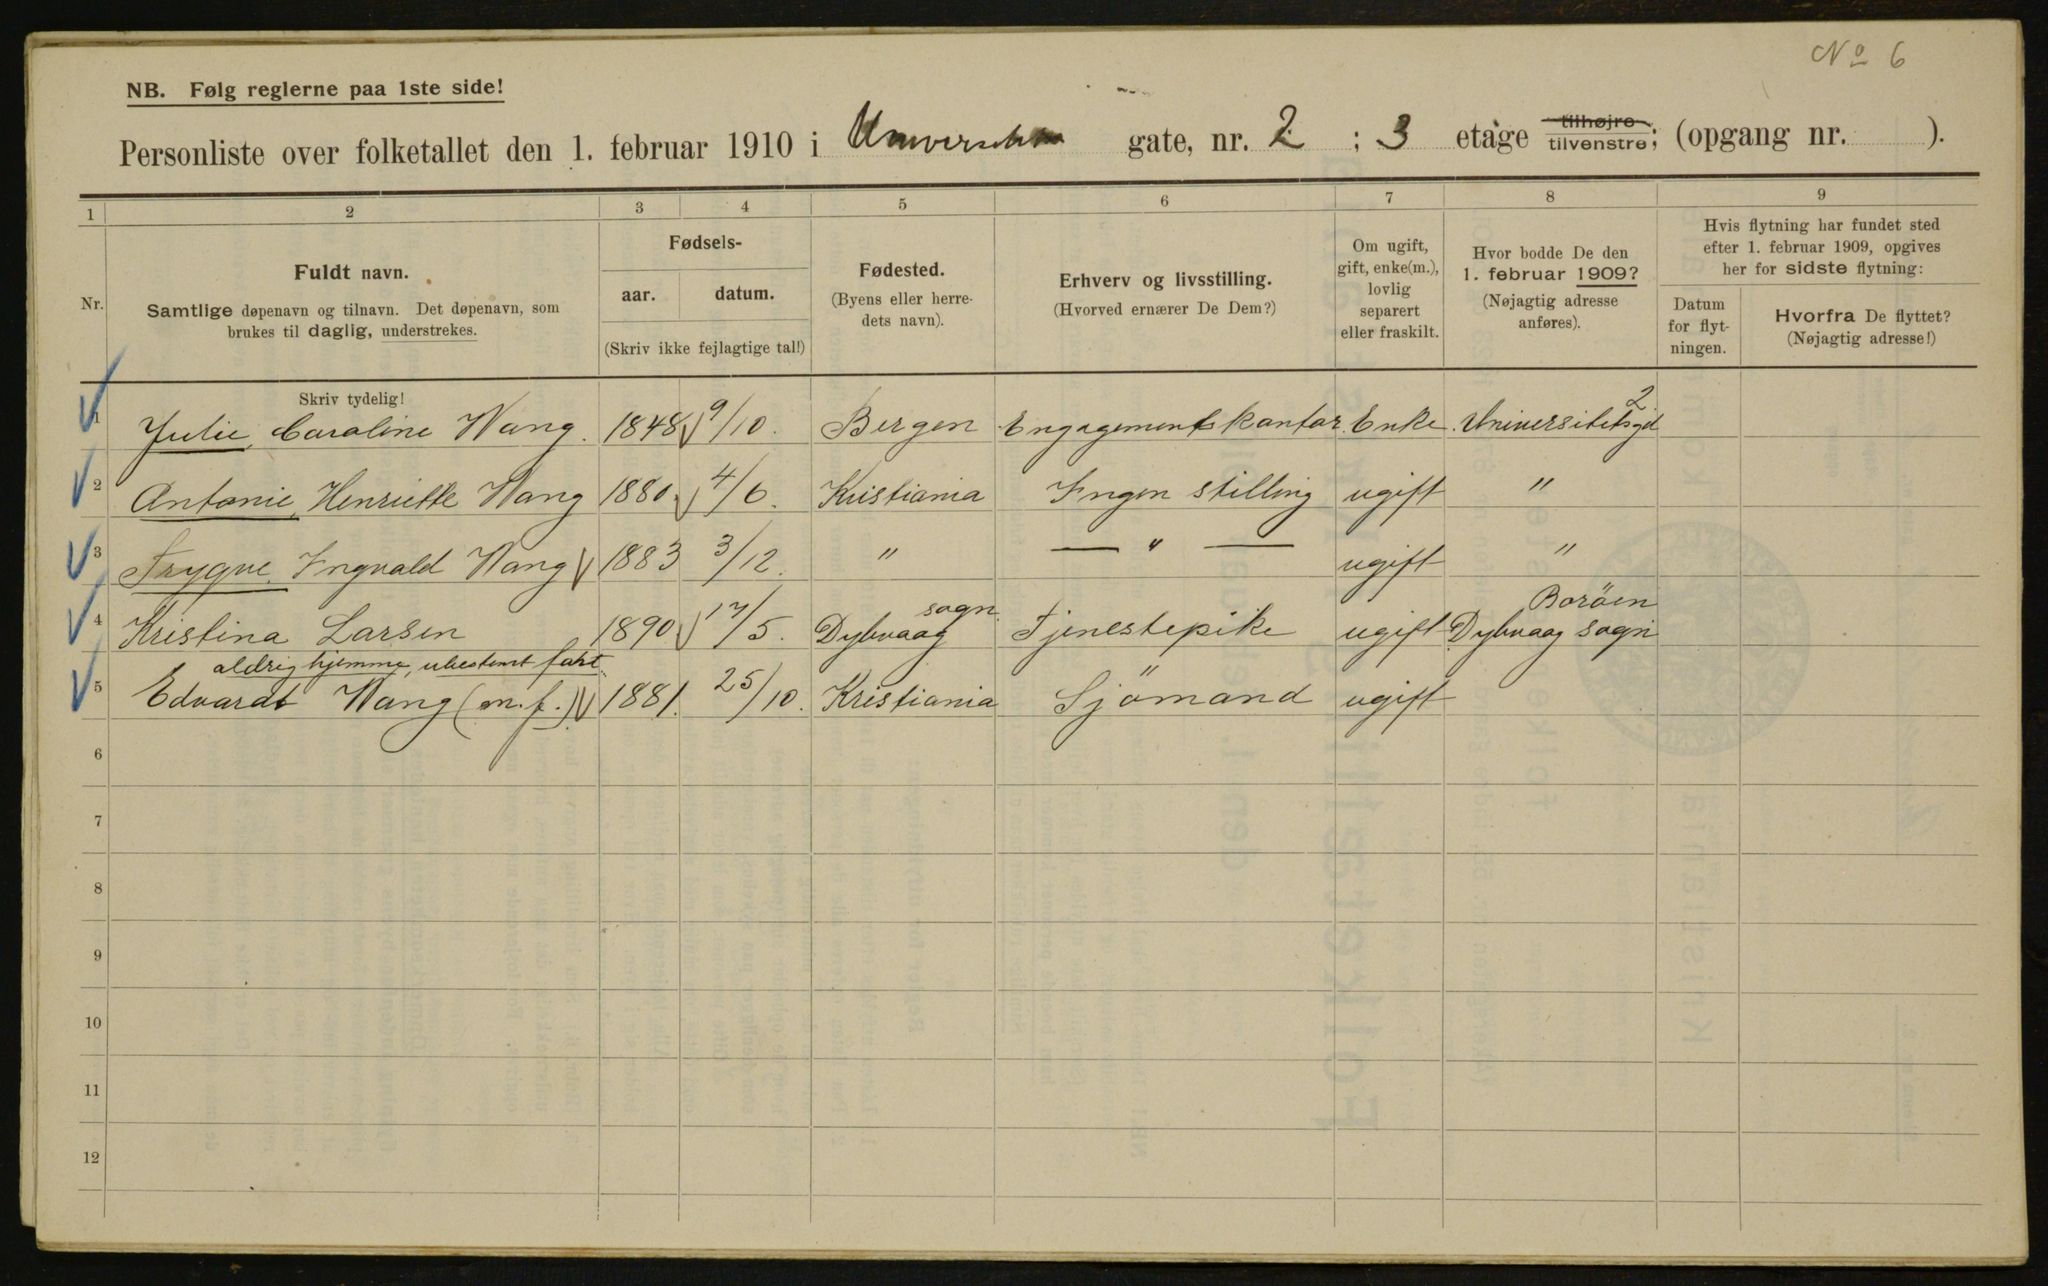 No 6
NB. Følg reglerne paa 1ste side!
Personliste over folketallet den 1. februar 1910 i gate, nr. 2 ; 3 etage tilhøjre tilvenstre; (opgang nr. ).
1 2 3 4 5 6 7 8 9
Nr.
Fuldt navn.
Samtlige døpenavn og tilnavn. Det døpenavn, som
brukes til daglig, understrekes.
Fødsels-
aar. datum.
(Skriv ikke fejlagtige tal!)
Fødested.
(Byens eller herre-
dets navn).
Erhverv og livsstilling.
(Hvorved ernærer De Dem?)
Om ugift,
gift, enke(m.),
lovlig
separert
eller fraskilt.
Hvor bodde De den
1. februar 1909?
(Nøjagtig adresse
anføres).
Hvis flytning har fundet sted
efter 1. februar 1909, opgives
her for sidste flytning:
Datum
for flyt-
ningen.
Hvorfra De flyttet?
(Nøjagtig adresse!)
Skriv tydelig!
1 Julie, Caroline Wang. 1848 9/10. Bergen Engagementskontor. Enke. Universitetsgd 2
2 Antonie, Henriette Wang 1880 4/6. Kristiania Ingen stilling ugift "
3 Trygve, Ingvald Wang 1883 3/12. " — " — ugift "
4 Kristina Larsen 1890 17/5. Dybvaag sogn. Tjenestepike ugift Boröen Dybvaag sogn
aldrig hjemme, ubestemt fart
5 Edvardt Wang (m. f.) 1881. 25/10. Kristiania Sjömand ugift
6
7
8
9
10
11
12